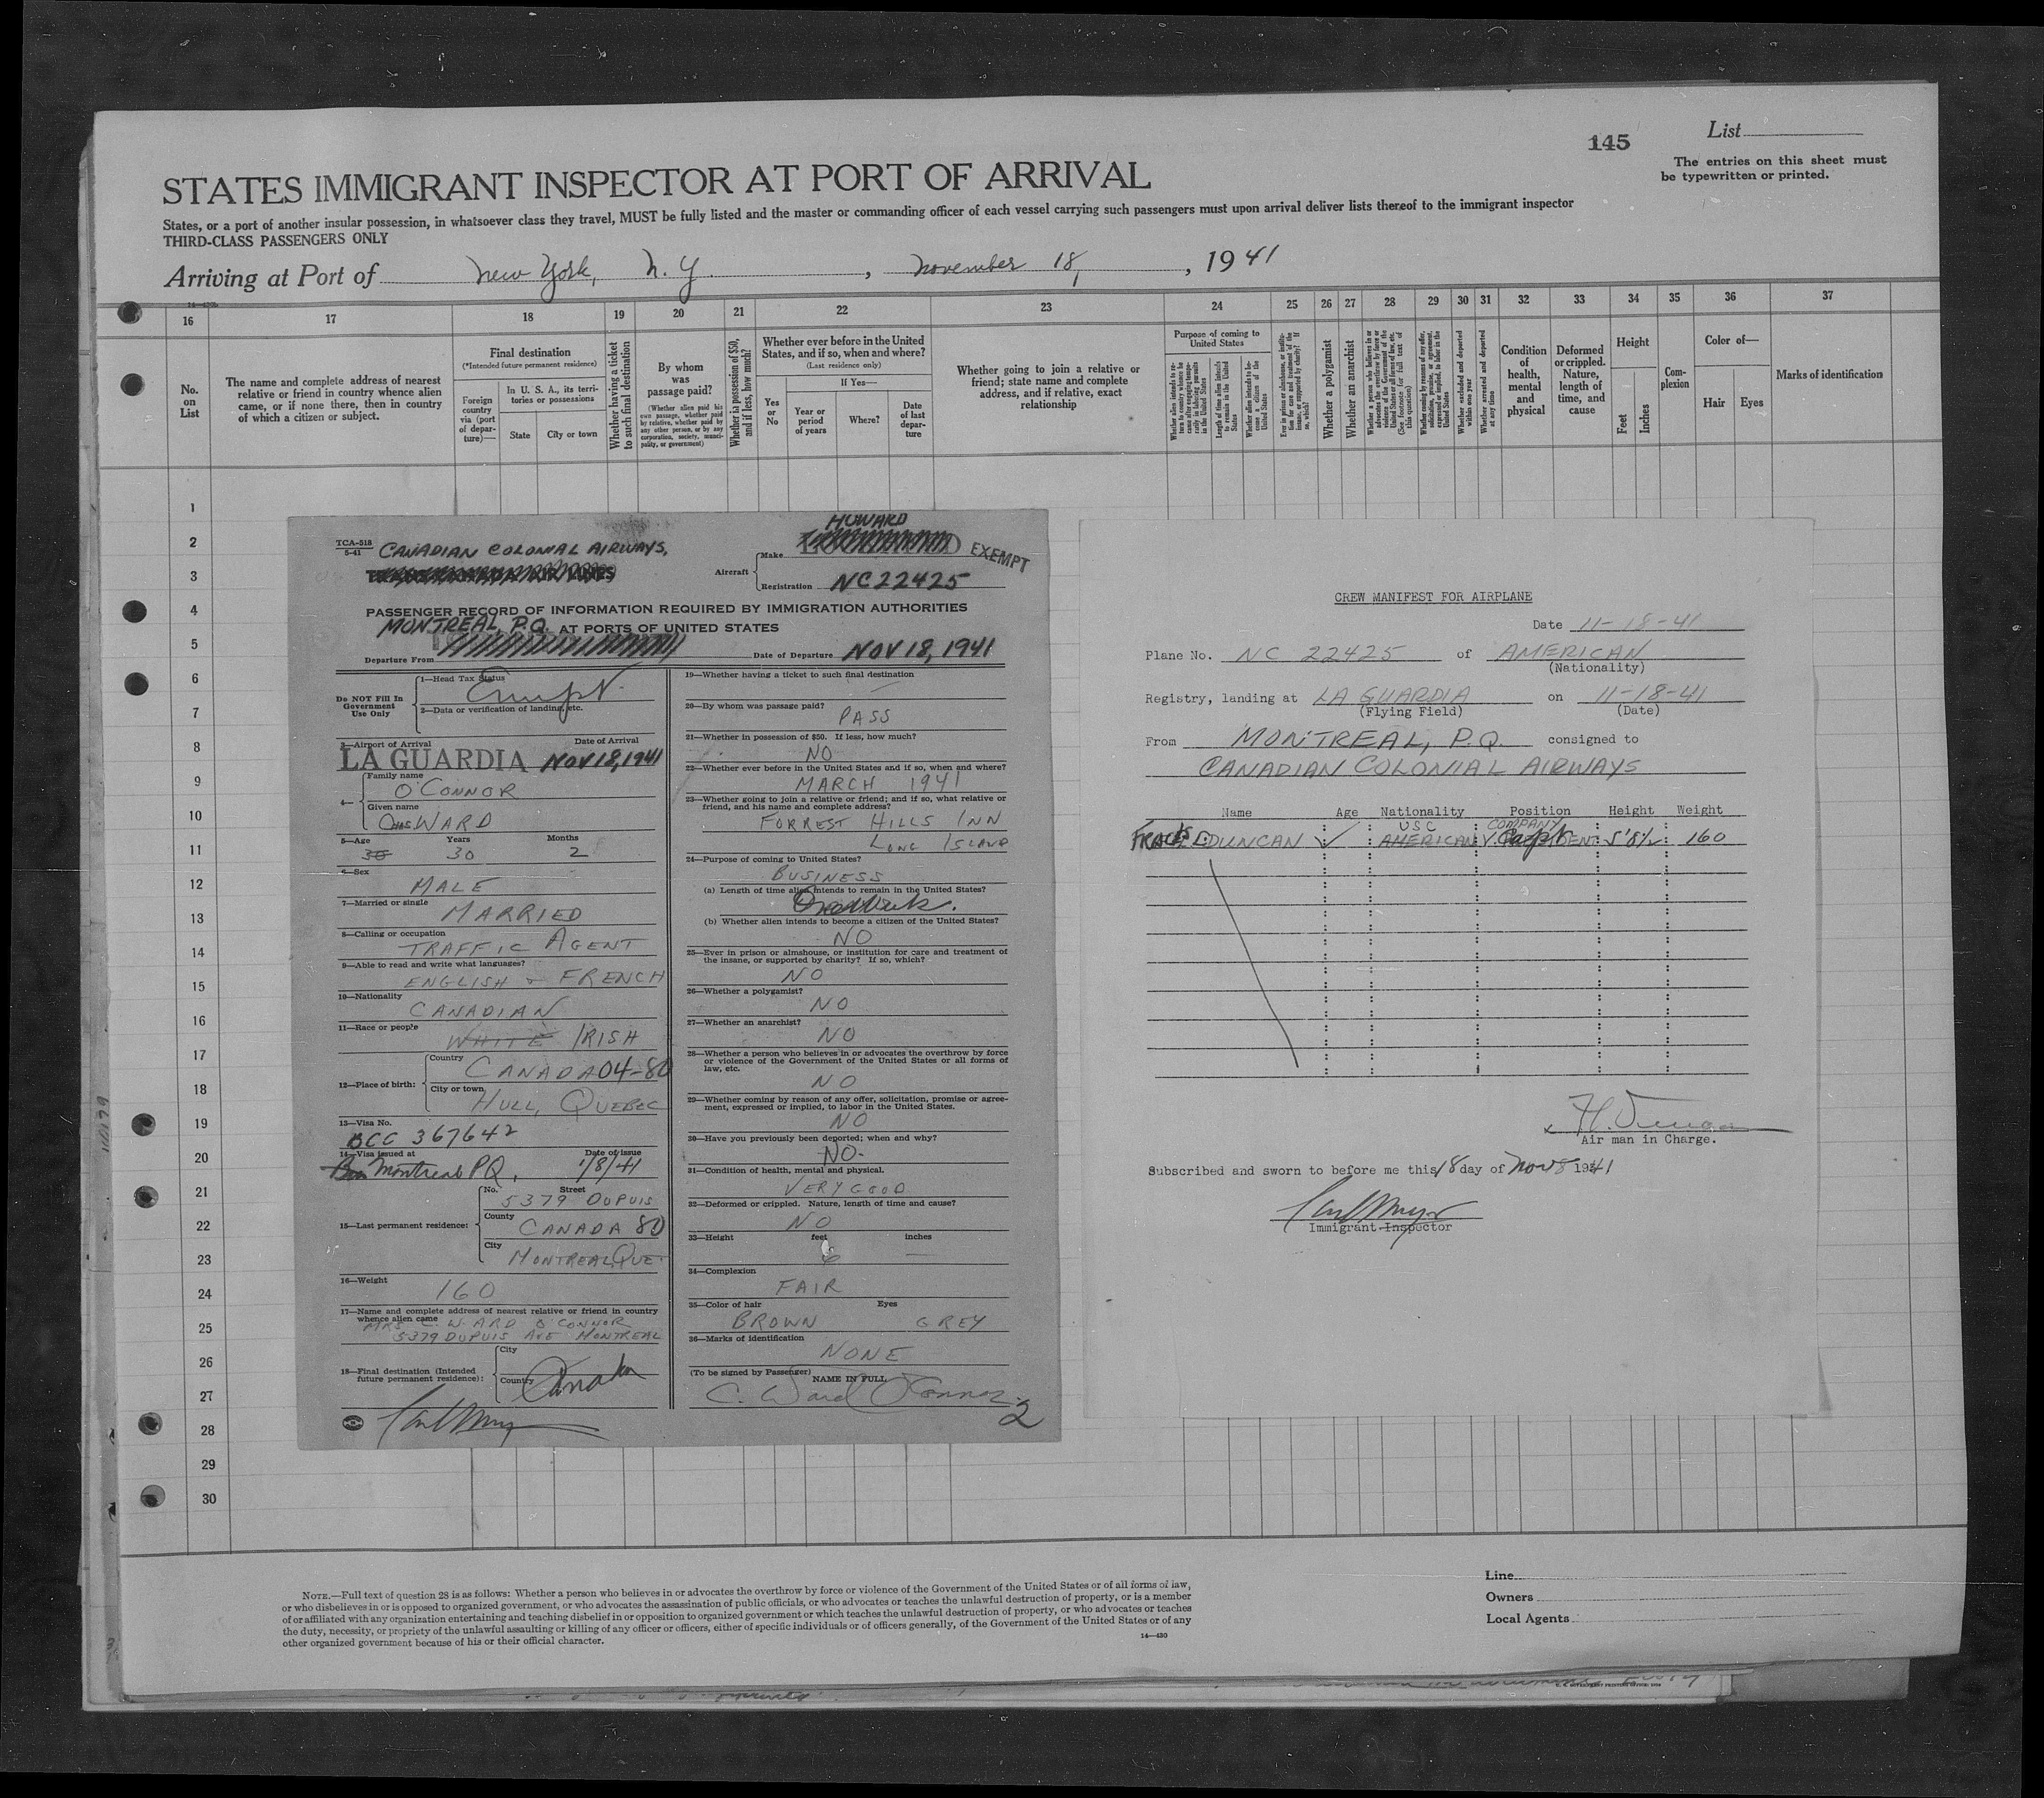 145
List
The entries on this sheet must
be typewritten or printed.
STATES IMMIGRANT INSPECTOR AT PORT OF ARRIVAL
States, or a port of another insular possession, in whatsoever class they travel, MUST be fully listed and the master or commanding officer of each vessel carrying such passengers must upon arrival deliver lists thereof to the immigrant inspector
THIRD-CLASS PASSENGERS ONLY
Arriving at Port of New York, N. Y. , November 18, , 1941
16 17 18 19 20 21 22 23 24 25 26 27 28 29 30 31 32 33 34 35 36 37
No. on List
The name and complete address of nearest
relative or friend in country whence alien
came, or if none there, then in country
of which a citizen or subject.
Final destination
(*Intended future permanent residence)
Foreign
country
via (port
of depar-
ture)—
In U. S. A., its terri-
tories or possessions
State
City or town
Whether having a ticket
to such final destination
By whom
was
passage paid?
(Whether alien paid his
own passage, whether paid
by relative, whether paid by
any other person, or by any
corporation, society, munici-
pality, or government)
Whether in possession of $50,
and if less, how much?
Whether ever before in the United
States, and if so, when and where?
(Last residence only)
Yes
or
No
If Yes—
Year or
period
of years
Where?
Date
of last
depar-
ture
Whether going to join a relative or
friend; state name and complete
address, and if relative, exact
relationship
Purpose of coming to
United States
Whether a polygamist
Whether an anarchist
Condition
of
health,
mental
and
physical
Deformed
or crippled.
Nature,
length of
time, and
cause
Height
Feet
Inches
Com-
plexion
Color of—
Hair
Eyes
Marks of identification
1
2
3
4
5
6
7
8
9
10
11
12
13
14
15
16
17
18
19
20
21
22
23
24
25
26
27
28
29
30
TCA-518
5-41
CANADIAN COLONIAL AIRWAYS,
Aircraft
Make HOWARD
EXEMPT
Registration NC22425
PASSENGER RECORD OF INFORMATION REQUIRED BY IMMIGRATION AUTHORITIES
AT PORTS OF UNITED STATES
MONTREAL, P.Q.
Departure From
Date of Departure NOV 18, 1941
Do NOT Fill In
Government
Use Only
1—Head Tax Status
Exempt
2—Data or verification of landing, etc.
3—Airport of Arrival Date of Arrival
LA GUARDIA NOV 18, 1941
4—
Family name
O'CONNOR
Given name
Chas WARD
5—Age Years Months
30 30 2
6—Sex
MALE
7—Married or single
MARRIED
8—Calling or occupation
TRAFFIC AGENT
9—Able to read and write what languages?
ENGLISH & FRENCH
10—Nationality
CANADIAN
11—Race or people
WHITE IRISH
12—Place of birth:
Country
CANADA 04-80
City or town
HULL, QUEBEC
13—Visa No.
BCC 367642
14—Visa issued at Date of issue
Montreal PQ, 1/8/41
15—Last permanent residence:
No. Street
5379 DUPUIS
County
CANADA 80
City
MONTREAL, QUE.
16—Weight
160
17—Name and complete address of nearest relative or friend in country
whence alien came
MRS C. WARD O'CONNOR
5379 DUPUIS AVE MONTREAL
18—Final destination (Intended
future permanent residence):
City
Country
Canada
19—Whether having a ticket to such final destination
—
20—By whom was passage paid?
PASS
21—Whether in possession of $50. If less, how much?
NO
22—Whether ever before in the United States and if so, when and where?
MARCH 1941
23—Whether going to join a relative or friend; and if so, what relative or
friend, and his name and complete address?
FORREST HILLS INN
LONG ISLAND
24—Purpose of coming to United States?
BUSINESS
(a) Length of time alien intends to remain in the United States?
One Week.
(b) Whether alien intends to become a citizen of the United States?
NO
25—Ever in prison or almshouse, or institution for care and treatment of
the insane, or supported by charity? If so, which?
NO
26—Whether a polygamist?
NO
27—Whether an anarchist?
NO
28—Whether a person who believes in or advocates the overthrow by force
or violence of the Government of the United States or all forms of
law, etc.
NO
29—Whether coming by reason of any offer, solicitation, promise or agree-
ment, expressed or implied, to labor in the United States.
NO
30—Have you previously been deported; when and why?
NO-
31—Condition of health, mental and physical.
VERY GOOD
32—Deformed or crippled. Nature, length of time and cause?
NO
33—Height feet inches
6 —
34—Complexion
FAIR
35—Color of hair Eyes
BROWN GREY
36—Marks of identification
NONE
(To be signed by Passenger)
NAME IN FULL
C. Ward O'Connor
2
CREW MANIFEST FOR AIRPLANE
Date 11-18-41
Plane No. NC 22425 of AMERICAN
(Nationality)
Registry, landing at LA GUARDIA on 11-18-41
(Flying Field) (Date)
From MONTREAL, P.Q. consigned to
CANADIAN COLONIAL AIRWAYS
Name Age Nationality Position Height Weight
USC COMPANY
DUNCAN AMERICAN 5'8½ 160
H. Duncan
Air man in Charge.
Subscribed and sworn to before me this 18 day of Nov 1941
Immigrant Inspector
NOTE.—Full text of question 28 is as follows: Whether a person who believes in or advocates the overthrow by force or violence of the Government of the United States or of all forms of law,
or who disbelieves in or is opposed to organized government, or who advocates the assassination of public officials, or who advocates or teaches the unlawful destruction of property, or is a member
of or affiliated with any organization entertaining and teaching disbelief in or opposition to organized government or which teaches the unlawful destruction of property, or who advocates or teaches
the duty, necessity, or propriety of the unlawful assaulting or killing of any officer or officers, either of specific individuals or of officers generally, of the Government of the United States or of any
other organized government because of his or their official character.
14—430
Line
Owners
Local Agents